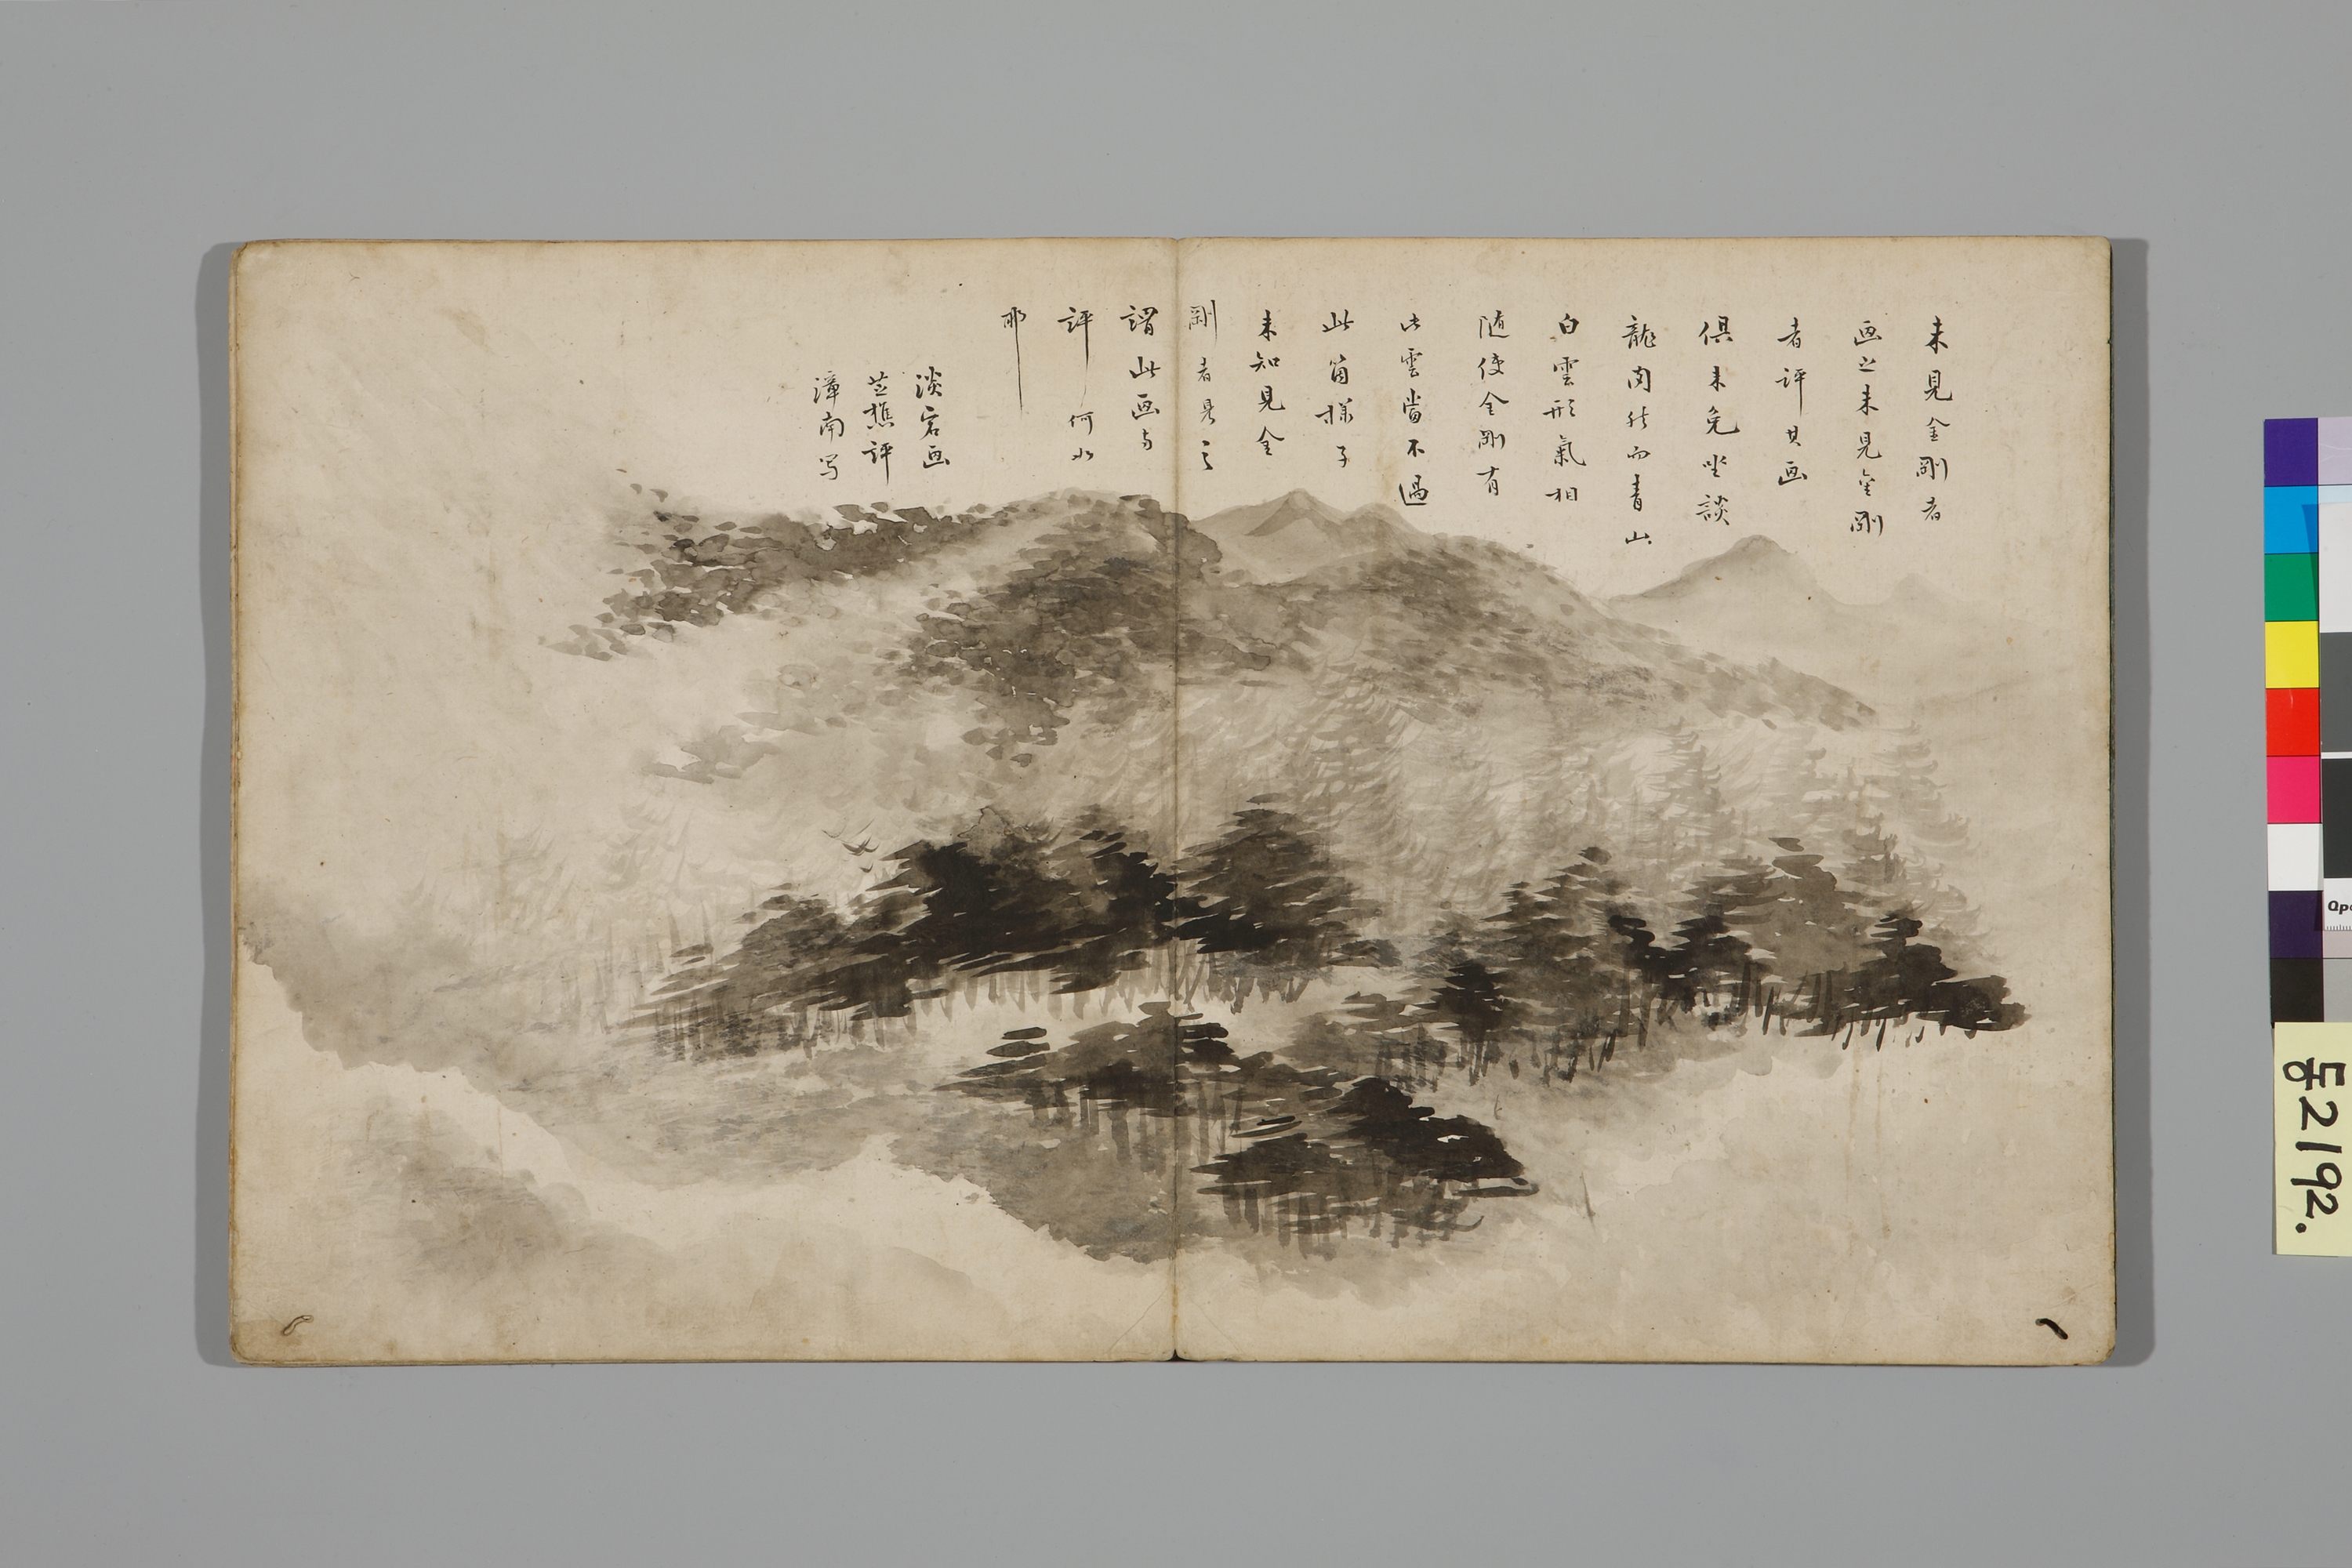 未見金剛者
画之未見金剛
者評其画
俱未免坐談
龍肉然而青山
白雲形氣相
随使金剛有
山雲當不過
此箇樣子
未知見金
剛者是之
謂此画与
評何如
耶
淡宕画
芸樵評
漳南写
동2192.